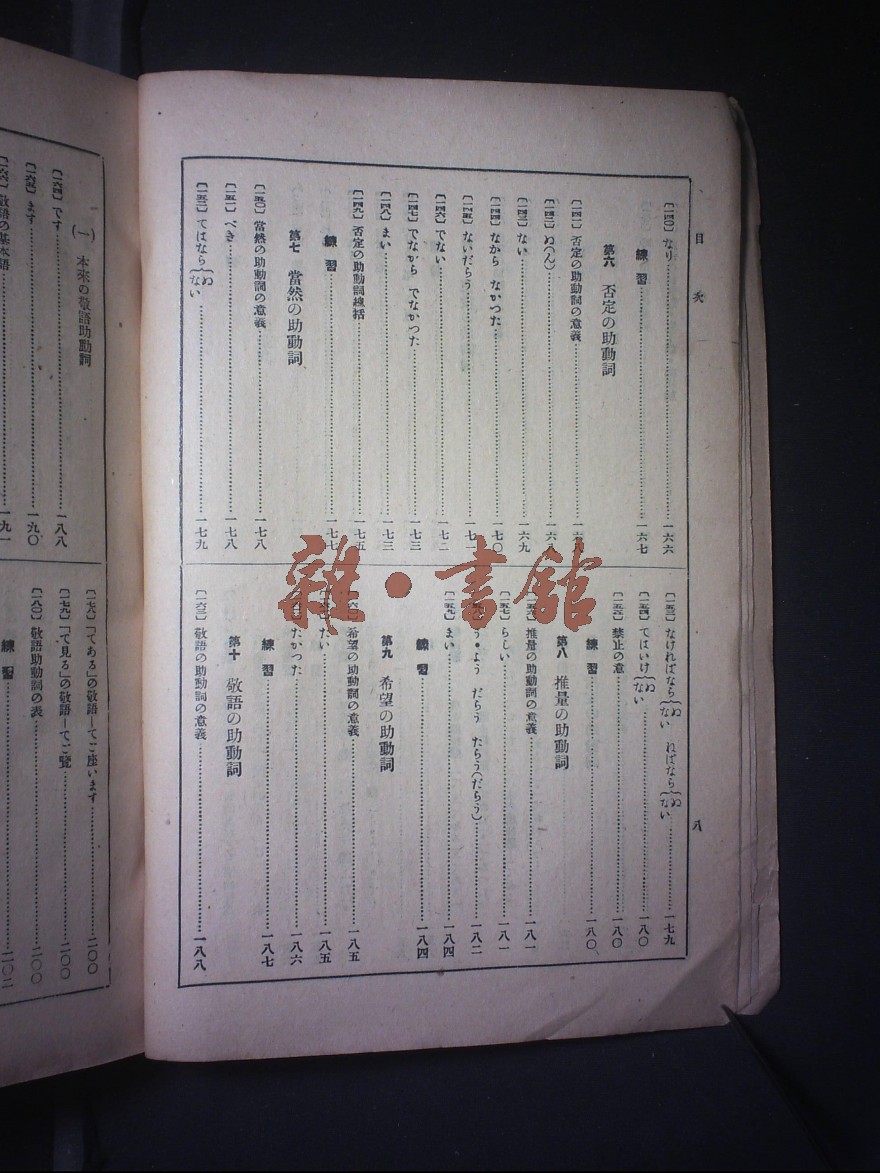 目次
八
〔一四〇〕なり……一六六
練習……一六七
第六 否定の助動詞
〔一四一〕否定の助動詞の意義……一六八
〔一四二〕ぬ(ん)……一六八
〔一四三〕ない……一六九
〔一四四〕なから なかつた……一七〇
〔一四五〕ないだらう……一七一
〔一四六〕でない……一七二
〔一四七〕でなから でなかつた……一七三
〔一四八〕まい……一七三
〔一四九〕否定の助動詞總括……一七五
練習……一七七
第七 當然の助動詞
〔一五〇〕當然の助動詞の意義……一七八
〔一五一〕べき……一七八
〔一五二〕てはなら{ぬ ない……一七九
〔一五三〕なければなら{ぬ ない ねばなら{ぬ ない……一七九
〔一五四〕てはいけ{ぬ ない……一八〇
〔一五五〕禁止の意……一八〇
練習……一八〇
第八 推量の助動詞
〔一五六〕推量の助動詞の意義……一八一
〔一五七〕らしい……一八一
う・よう だらう たらう(だらう)……一八二
〔一五九〕まい……一八四
練習……一八四
第九 希望の助動詞
希望の助動詞の意義……一八五
たい……一八五
たかつた……一八六
練習……一八七
第十 敬語の助動詞
〔一六三〕敬語の助動詞の意義……一八八
(一) 本來の敬語助動詞
〔一六四〕です……一八八
〔一六五〕ます……一九〇
〔一六六〕敬語の基本語……一九一
〔一七八〕「てある」の敬語—てご座います……二〇〇
〔一七九〕「て見る」の敬語—てご覽……二〇〇
〔一八〇〕敬語助動詞の表……二〇〇
練習……二〇二
雜·書舘